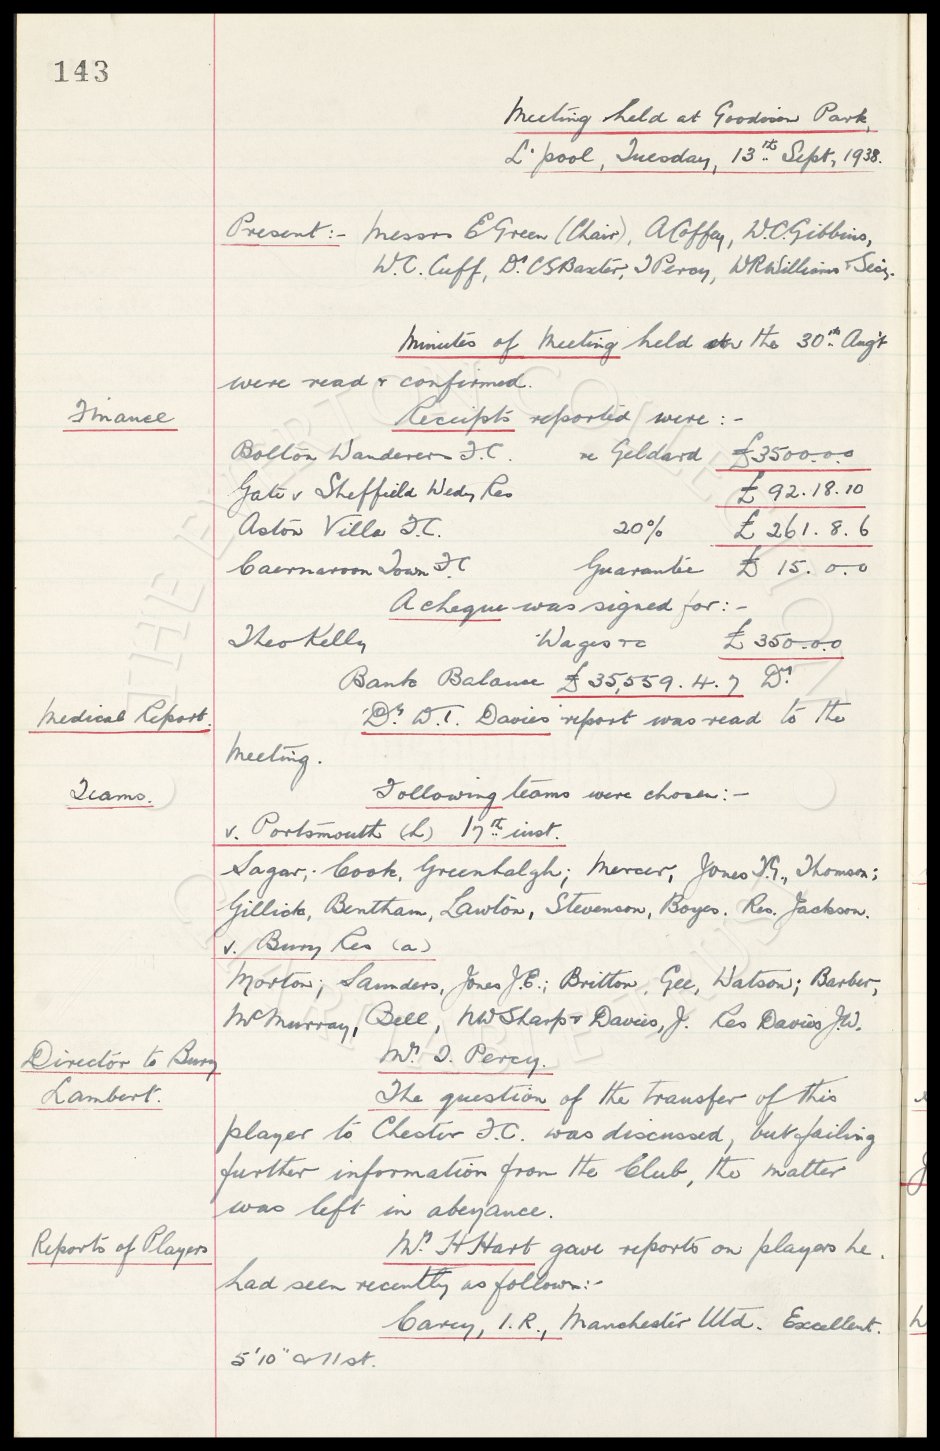 143
Meeting held at Goodison Park,
L'pool, Tuesday, 13th Sept, 1938.
Present:- Messrs E Green (Chair), A Coffey, W.C. Gibbins,
W.C. Cuff, Dr C S Baxter, T Percy, W R Williams & Secy.
Minutes of Meeting held on the 30th Aug't
were read & confirmed.
Finance
Receipts reported were:-
Bolton Wanderers F.C. re Geldard £3500.0.0
Gate v Sheffield Wedy Res £92.18.10
Aston Villa F.C. 20% £261.8.6
Caernarvon Town F.C Guarantee £15.0.0
A cheque was signed for:-
Theo Kelly Wages &c £350.0.0
Bank Balance £35,559.4.7 Dr
Medical Report.
Dr W.T. Davies' report was read to the
Meeting.
Teams.
Following teams were chosen:-
v. Portsmouth (h) 17th inst.
Sagar; Cook, Greenhalgh; Mercer, Jones T.G., Thomson;
Gillick, Bentham, Lawton, Stevenson, Boyes. Res. Jackson.
v. Bury Res (a)
Morton; Saunders, Jones J.E.; Britton, Gee, Watson; Barber,
McMurray, Bell, N W Sharp & Davies, J. Res Davies J.W.
Director to Bury
Mr. T. Percy.
Lambert.
The question of the transfer of this
player to Chester F.C. was discussed, but failing
further information from the Club, the matter
was left in abeyance.
Reports of Players
Mr. H Hart gave reports on players he
had seen recently as follows:-
Carey, I.R., Manchester Utd. Excellent.
5'10" & 11 st.